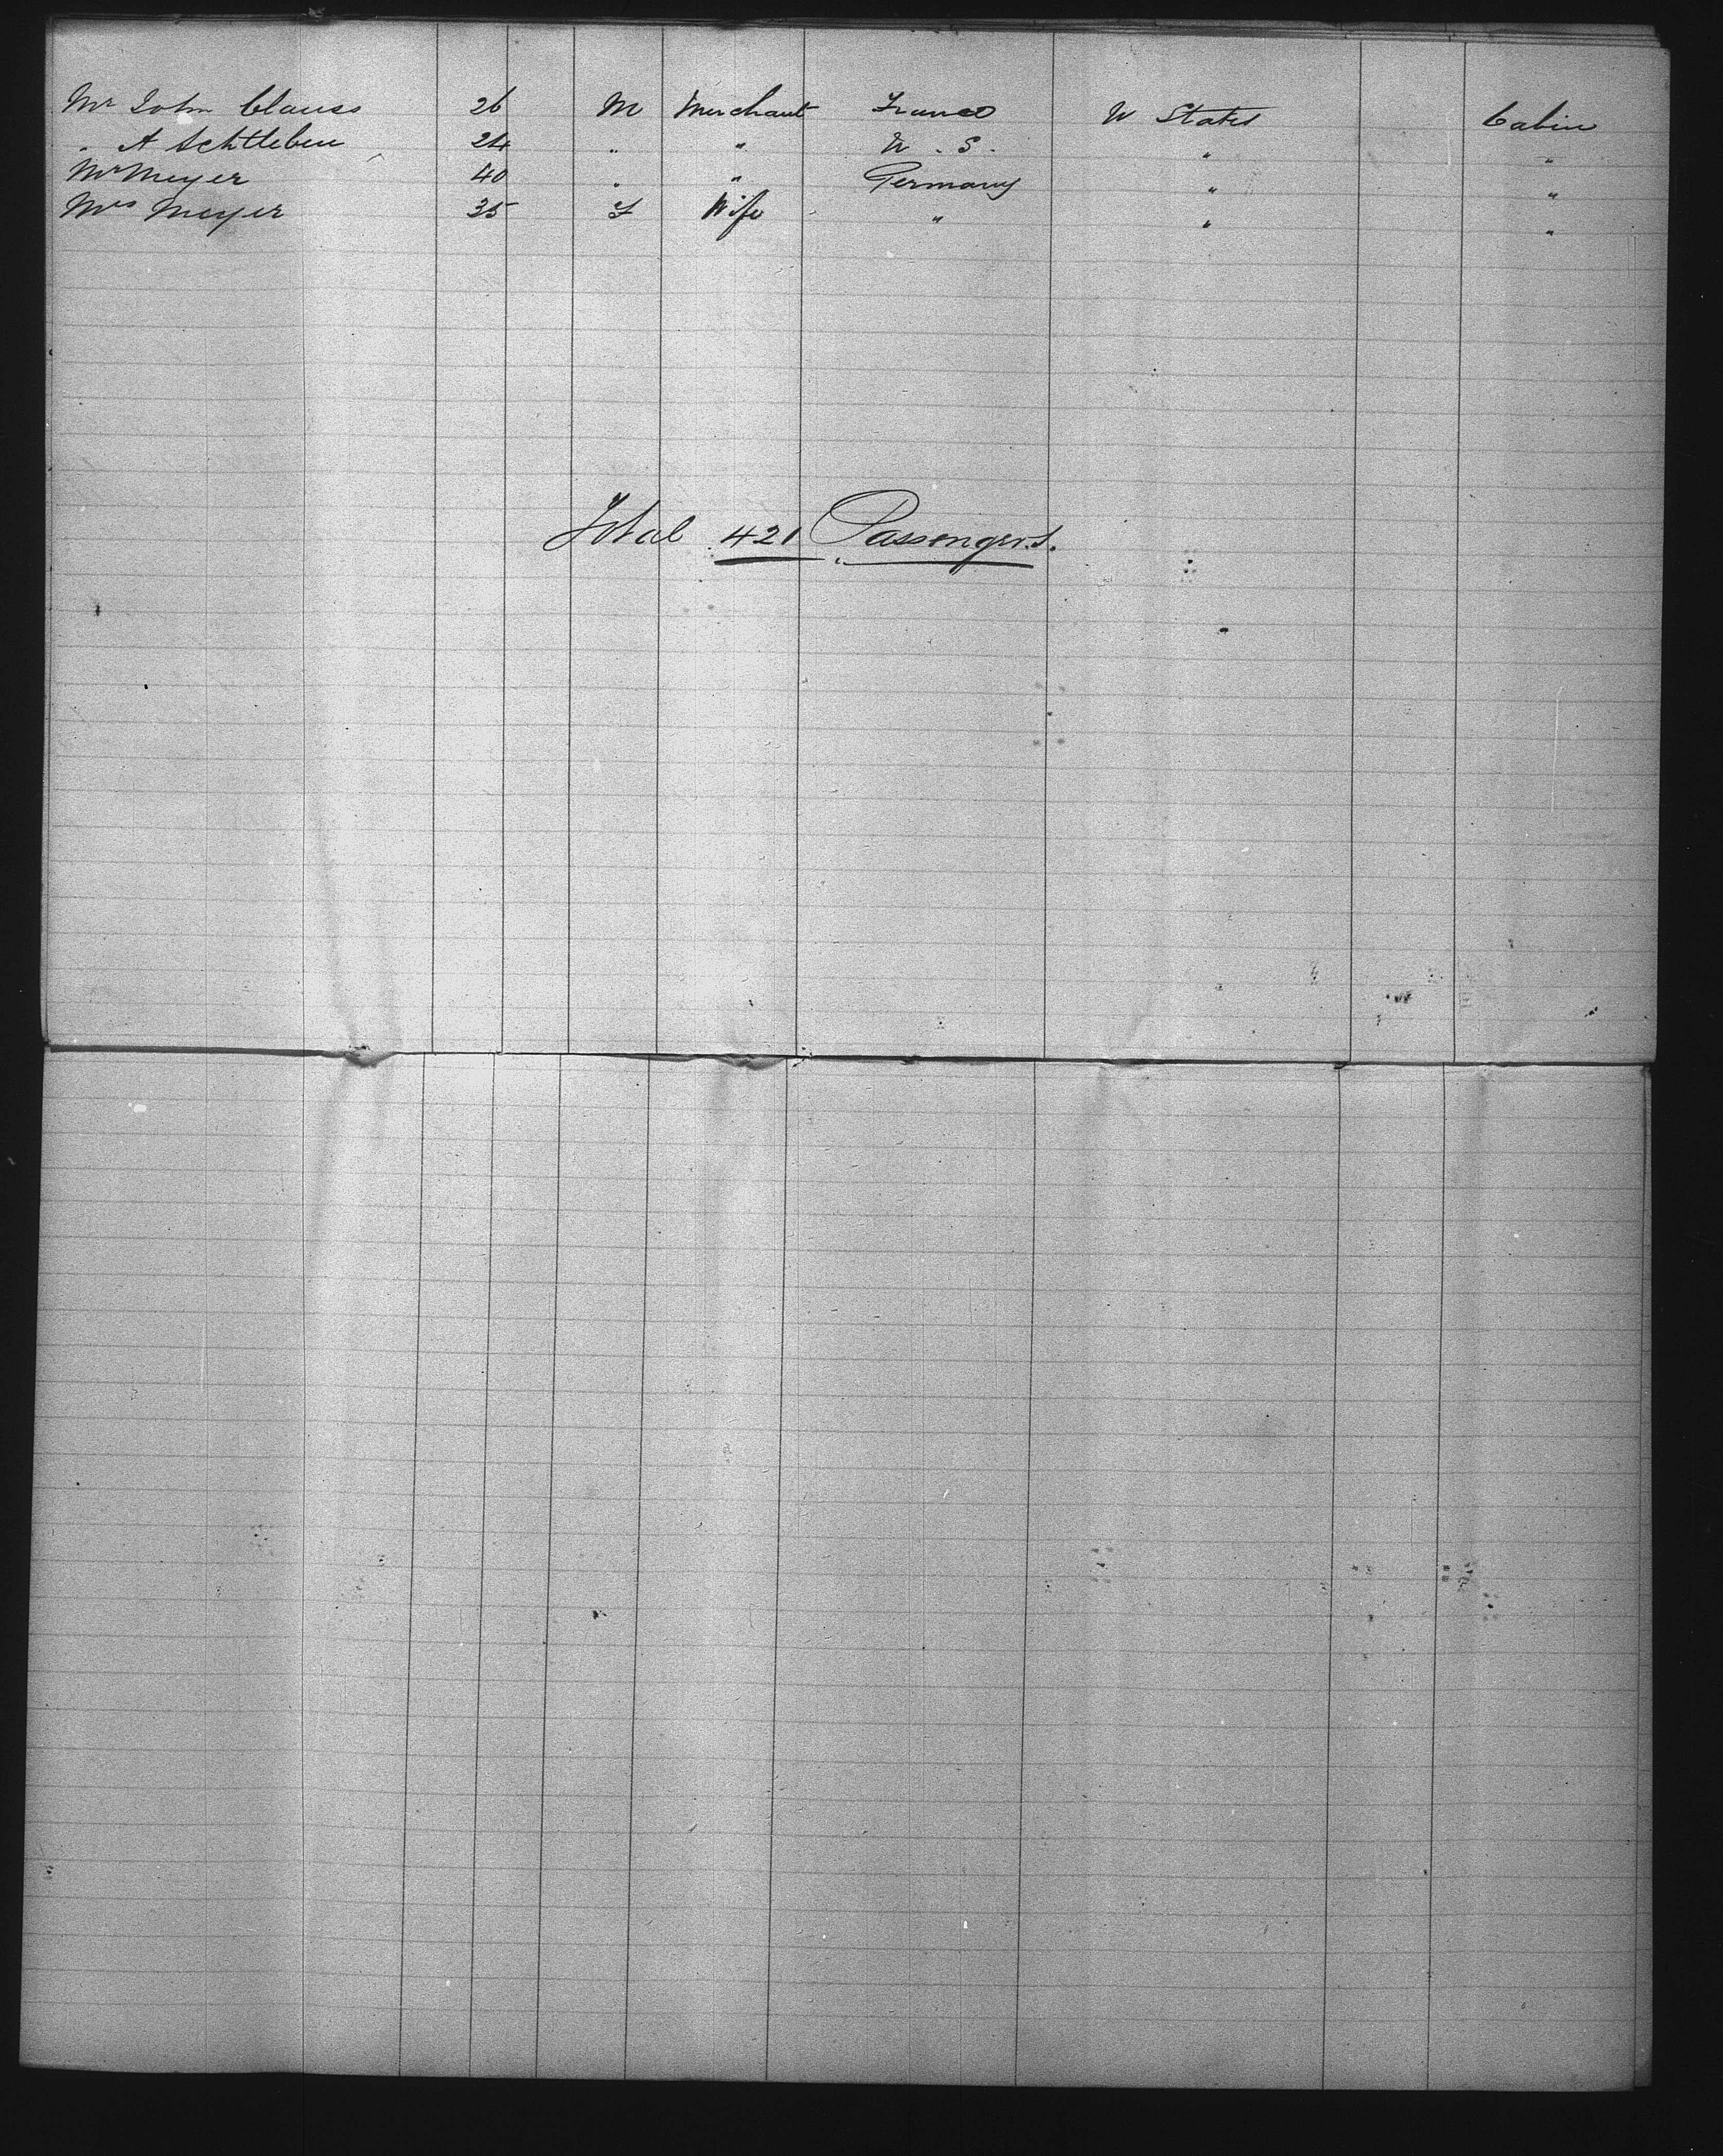 Mr John Clauss 26 M Merchant France U States Cabin
" A Achtleben 24 " " U. S. " "
Mr Meyer 40 " " Germany " "
Mrs Meyer 35 F Wife " " "
Total 421 Passengers.